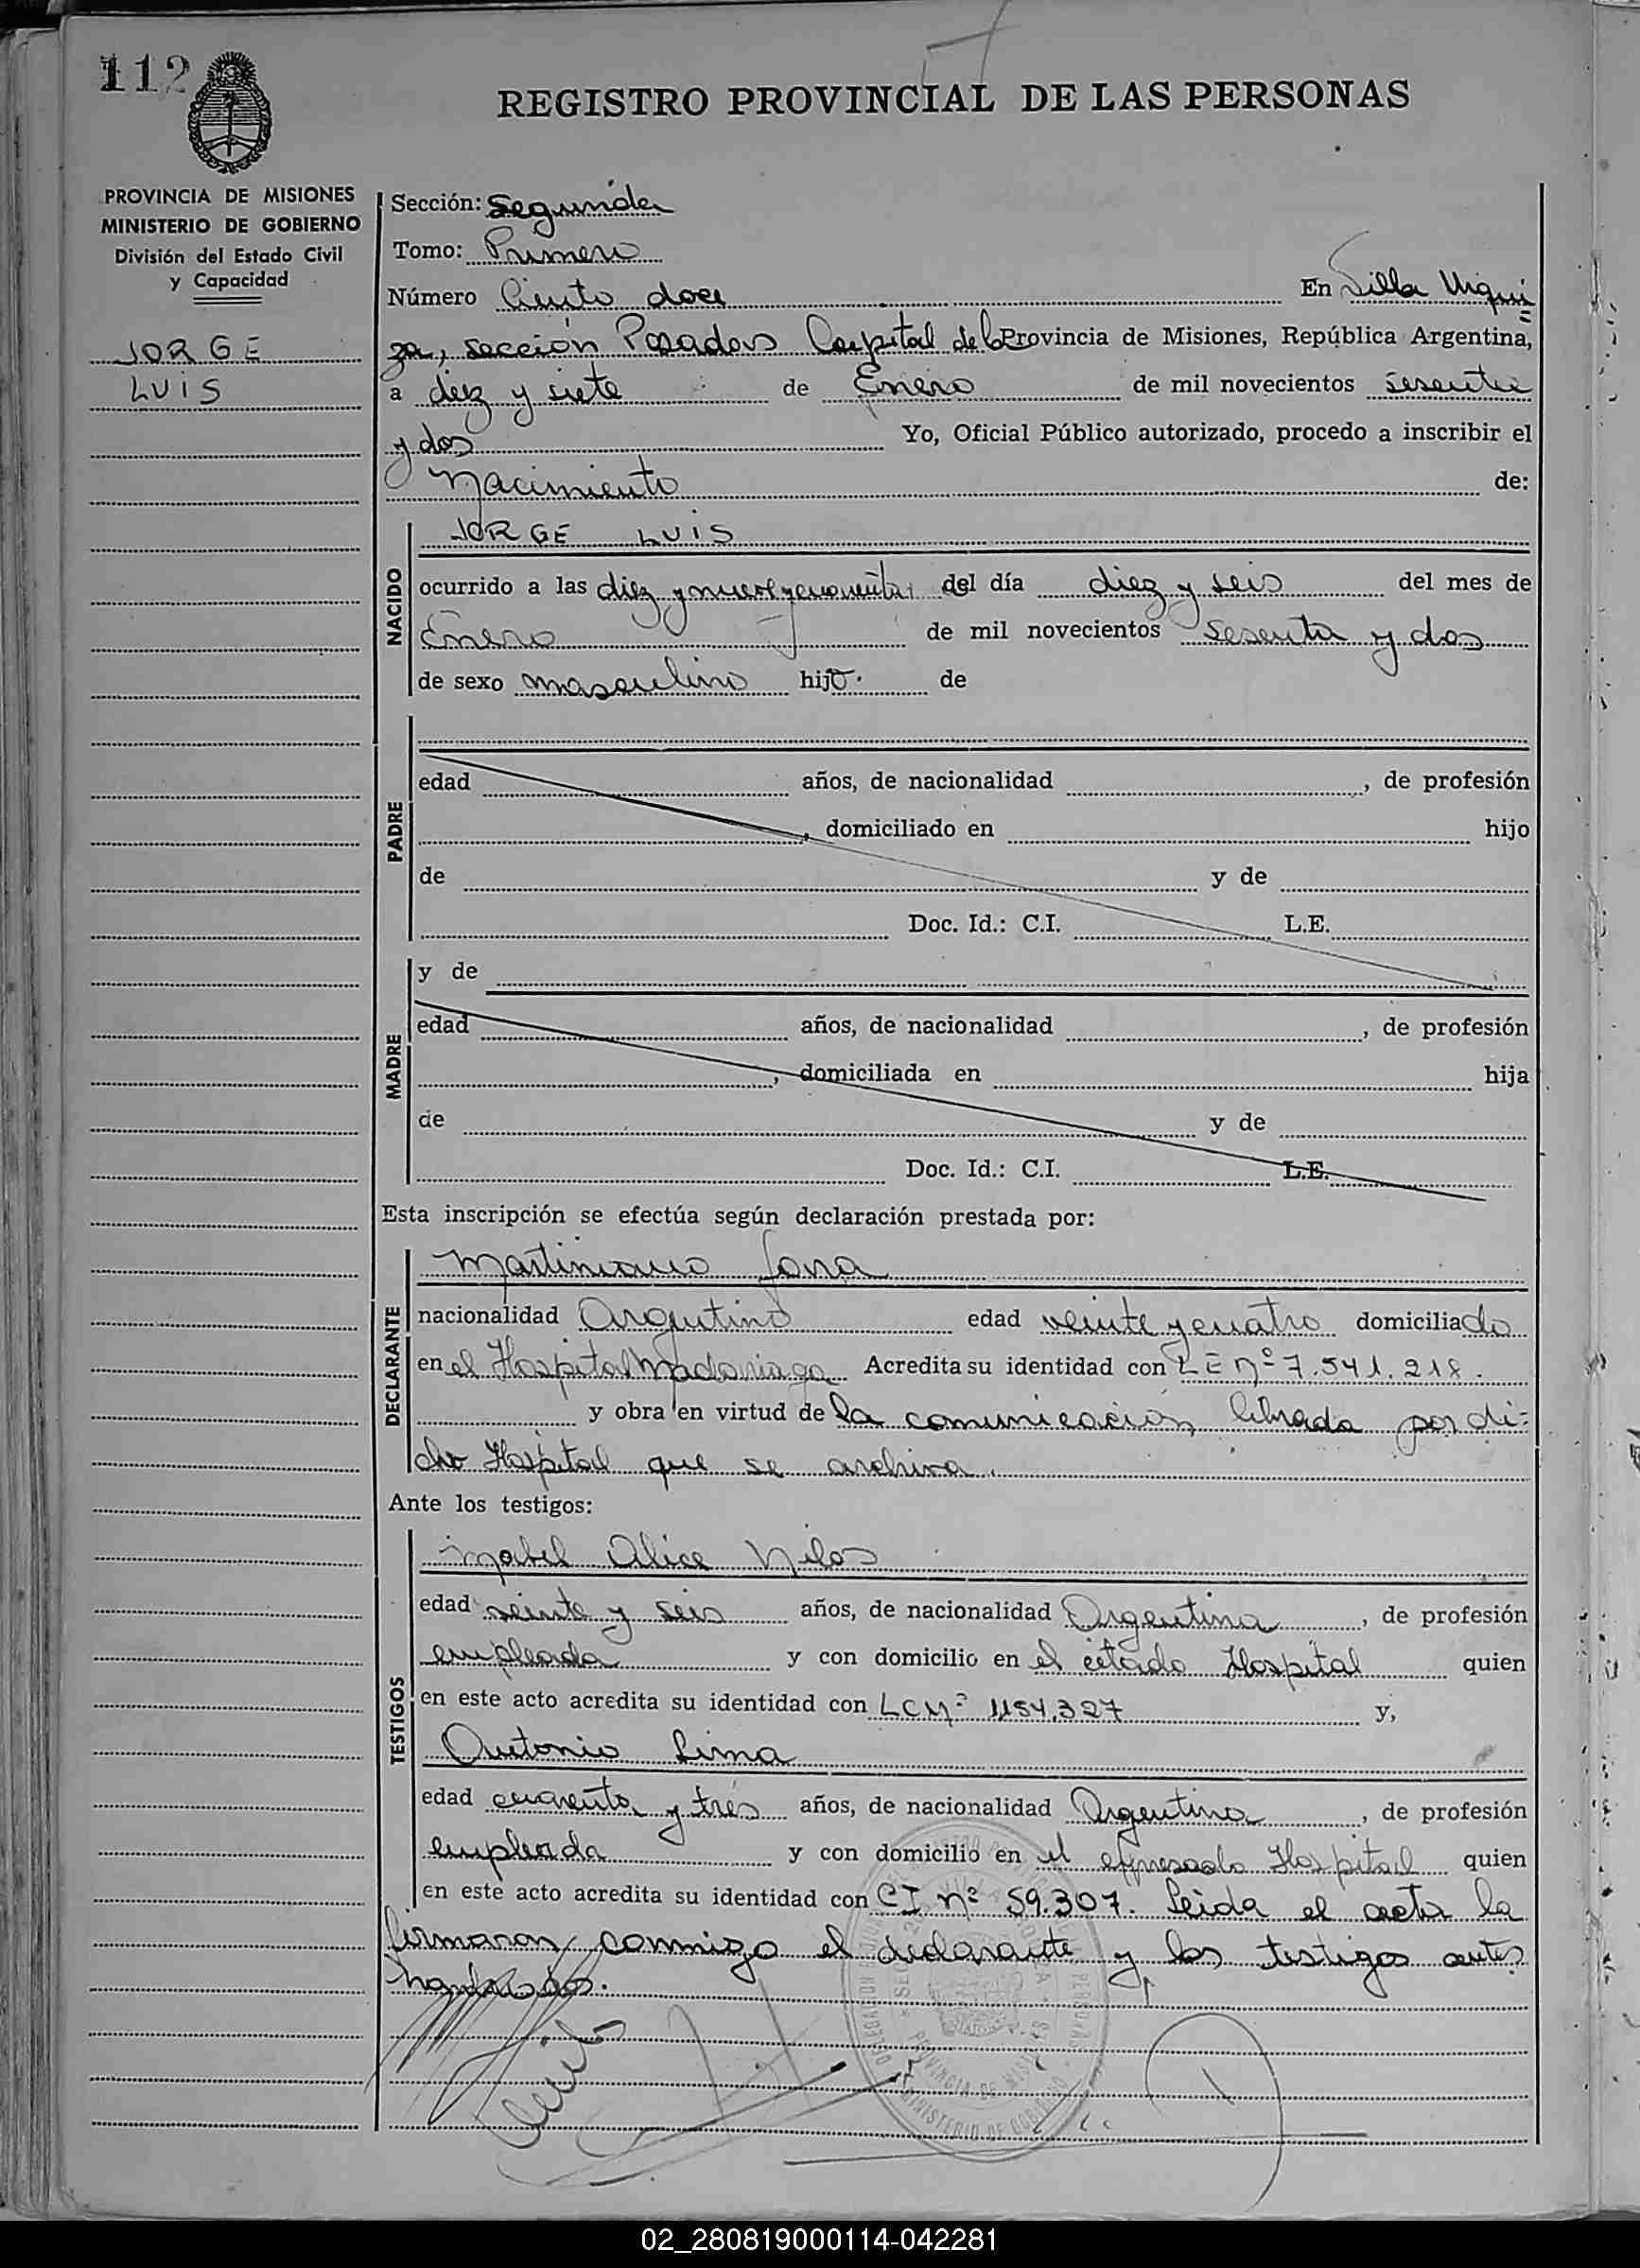 112
REGISTRO PROVINCIAL DE LAS PERSONAS
PROVINCIA DE MISIONES
MINISTERIO DE GOBIERNO
División del Estado Civil
y Capacidad
JORGE
LUIS
Sección: Segunda
Tomo: Primero
Número Ciento doce En Villa Urqui
za, sección Posadas Capital de la Provincia de Misiones, República Argentina,
a diez y siete de Enero de mil novecientos sesenta
y dos Yo, Oficial Público autorizado, procedo a inscribir el
Nacimiento de:
NACIDO
JORGE LUIS
ocurrido a las diez y nueve y cuarenta del día diez y seis del mes de
Enero de mil novecientos sesenta y dos
de sexo masculino hijo. de
PADRE
edad años, de nacionalidad , de profesión
, domiciliado en hijo
de y de
Doc. Id.: C.I. L.E.
MADRE
y de
edad años, de nacionalidad , de profesión
, domiciliada en hija
de y de
Doc. Id.: C.I. L.E.
Esta inscripción se efectúa según declaración prestada por:
DECLARANTE
Martiniano
nacionalidad Argentino edad veinte y cuatro domiciliado
en el Hospital Madariaga Acredita su identidad con LE Nº 7.541.218.
y obra en virtud de la comunicación librada por di=
cho Hospital que se archiva.
Ante los testigos:
TESTIGOS
Mabel Alice
edad veinte y seis años, de nacionalidad Argentina, de profesión
empleada y con domicilio en el citado Hospital quien
en este acto acredita su identidad con LC Nº 1154.327 y,
Antonio Lima
edad cuarenta y tres años, de nacionalidad Argentina, de profesión
empleada y con domicilio en el expresado Hospital quien
en este acto acredita su identidad con CI nº 59.307. Leida el acta la
firmaron conmigo el declarante y los testigos antes
nombrados.
PROVINCIA DE MISIONES
MINISTERIO DE GOBIERNO
02_280819000114-042281